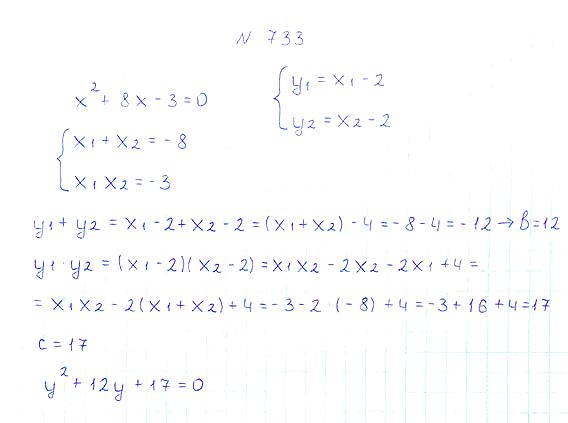 N 733
x² + 8x - 3 = 0
{ x1 + x2 = -8
x1 x2 = -3
{ y1 = x1 - 2
y2 = x2 - 2
y1 + y2 = x1 - 2 + x2 - 2 = (x1 + x2) - 4 = -8 - 4 = -12 → B = 12
y1 · y2 = (x1 - 2)(x2 - 2) = x1x2 - 2x2 - 2x1 + 4 =
= x1x2 - 2(x1 + x2) + 4 = -3 - 2 · (-8) + 4 = -3 + 16 + 4 = 17
c = 17
y² + 12y + 17 = 0